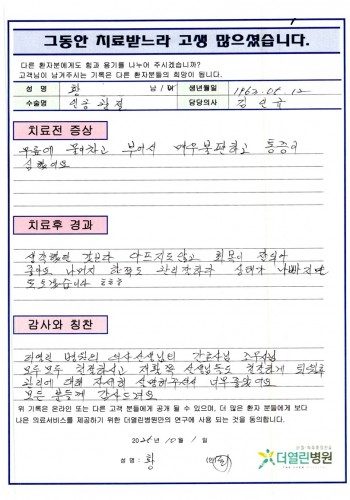 그동안 치료받느라 고생 많으셨습니다.
다른 환자분에게도 힘과 용기를 나누어 주시겠습니까?
고객님이 남겨주시는 기록은 다른 환자분들의 희망이 됩니다.
성 명 황 남 / 여 생년월일 1962. 08. 12
수술명 인공관절 담당의사 김
치료전 증상
무릎에 물차고 부어서 매우불편하고 통증이
심했어요
치료후 경과
생각했던 것보다 아프지도않고 회복이 잘되어
나머지 한쪽도 관리잘하다 상태가 나빠지면
또오겠습니다 ㅎㅎㅎ
감사와 칭찬
더열린 병원의 의사선생님 간호사님
모두모두 친절하시고 선생님들도 친절하게
관리에 대해 자세히 설명해주셔서 너무좋았어요
모든 분들께 감사드려요
위 기록은 온라인 또는 다른 고객 분들에게 공개 될 수 있으며, 더 많은 환자 분들에게 보다
나은 의료서비스를 제공하기 위한 더열린병원만의 연구에 사용 되는 것을 동의합니다.
년 10 월 1 일
성 명 : 황 (인)
더열린병원